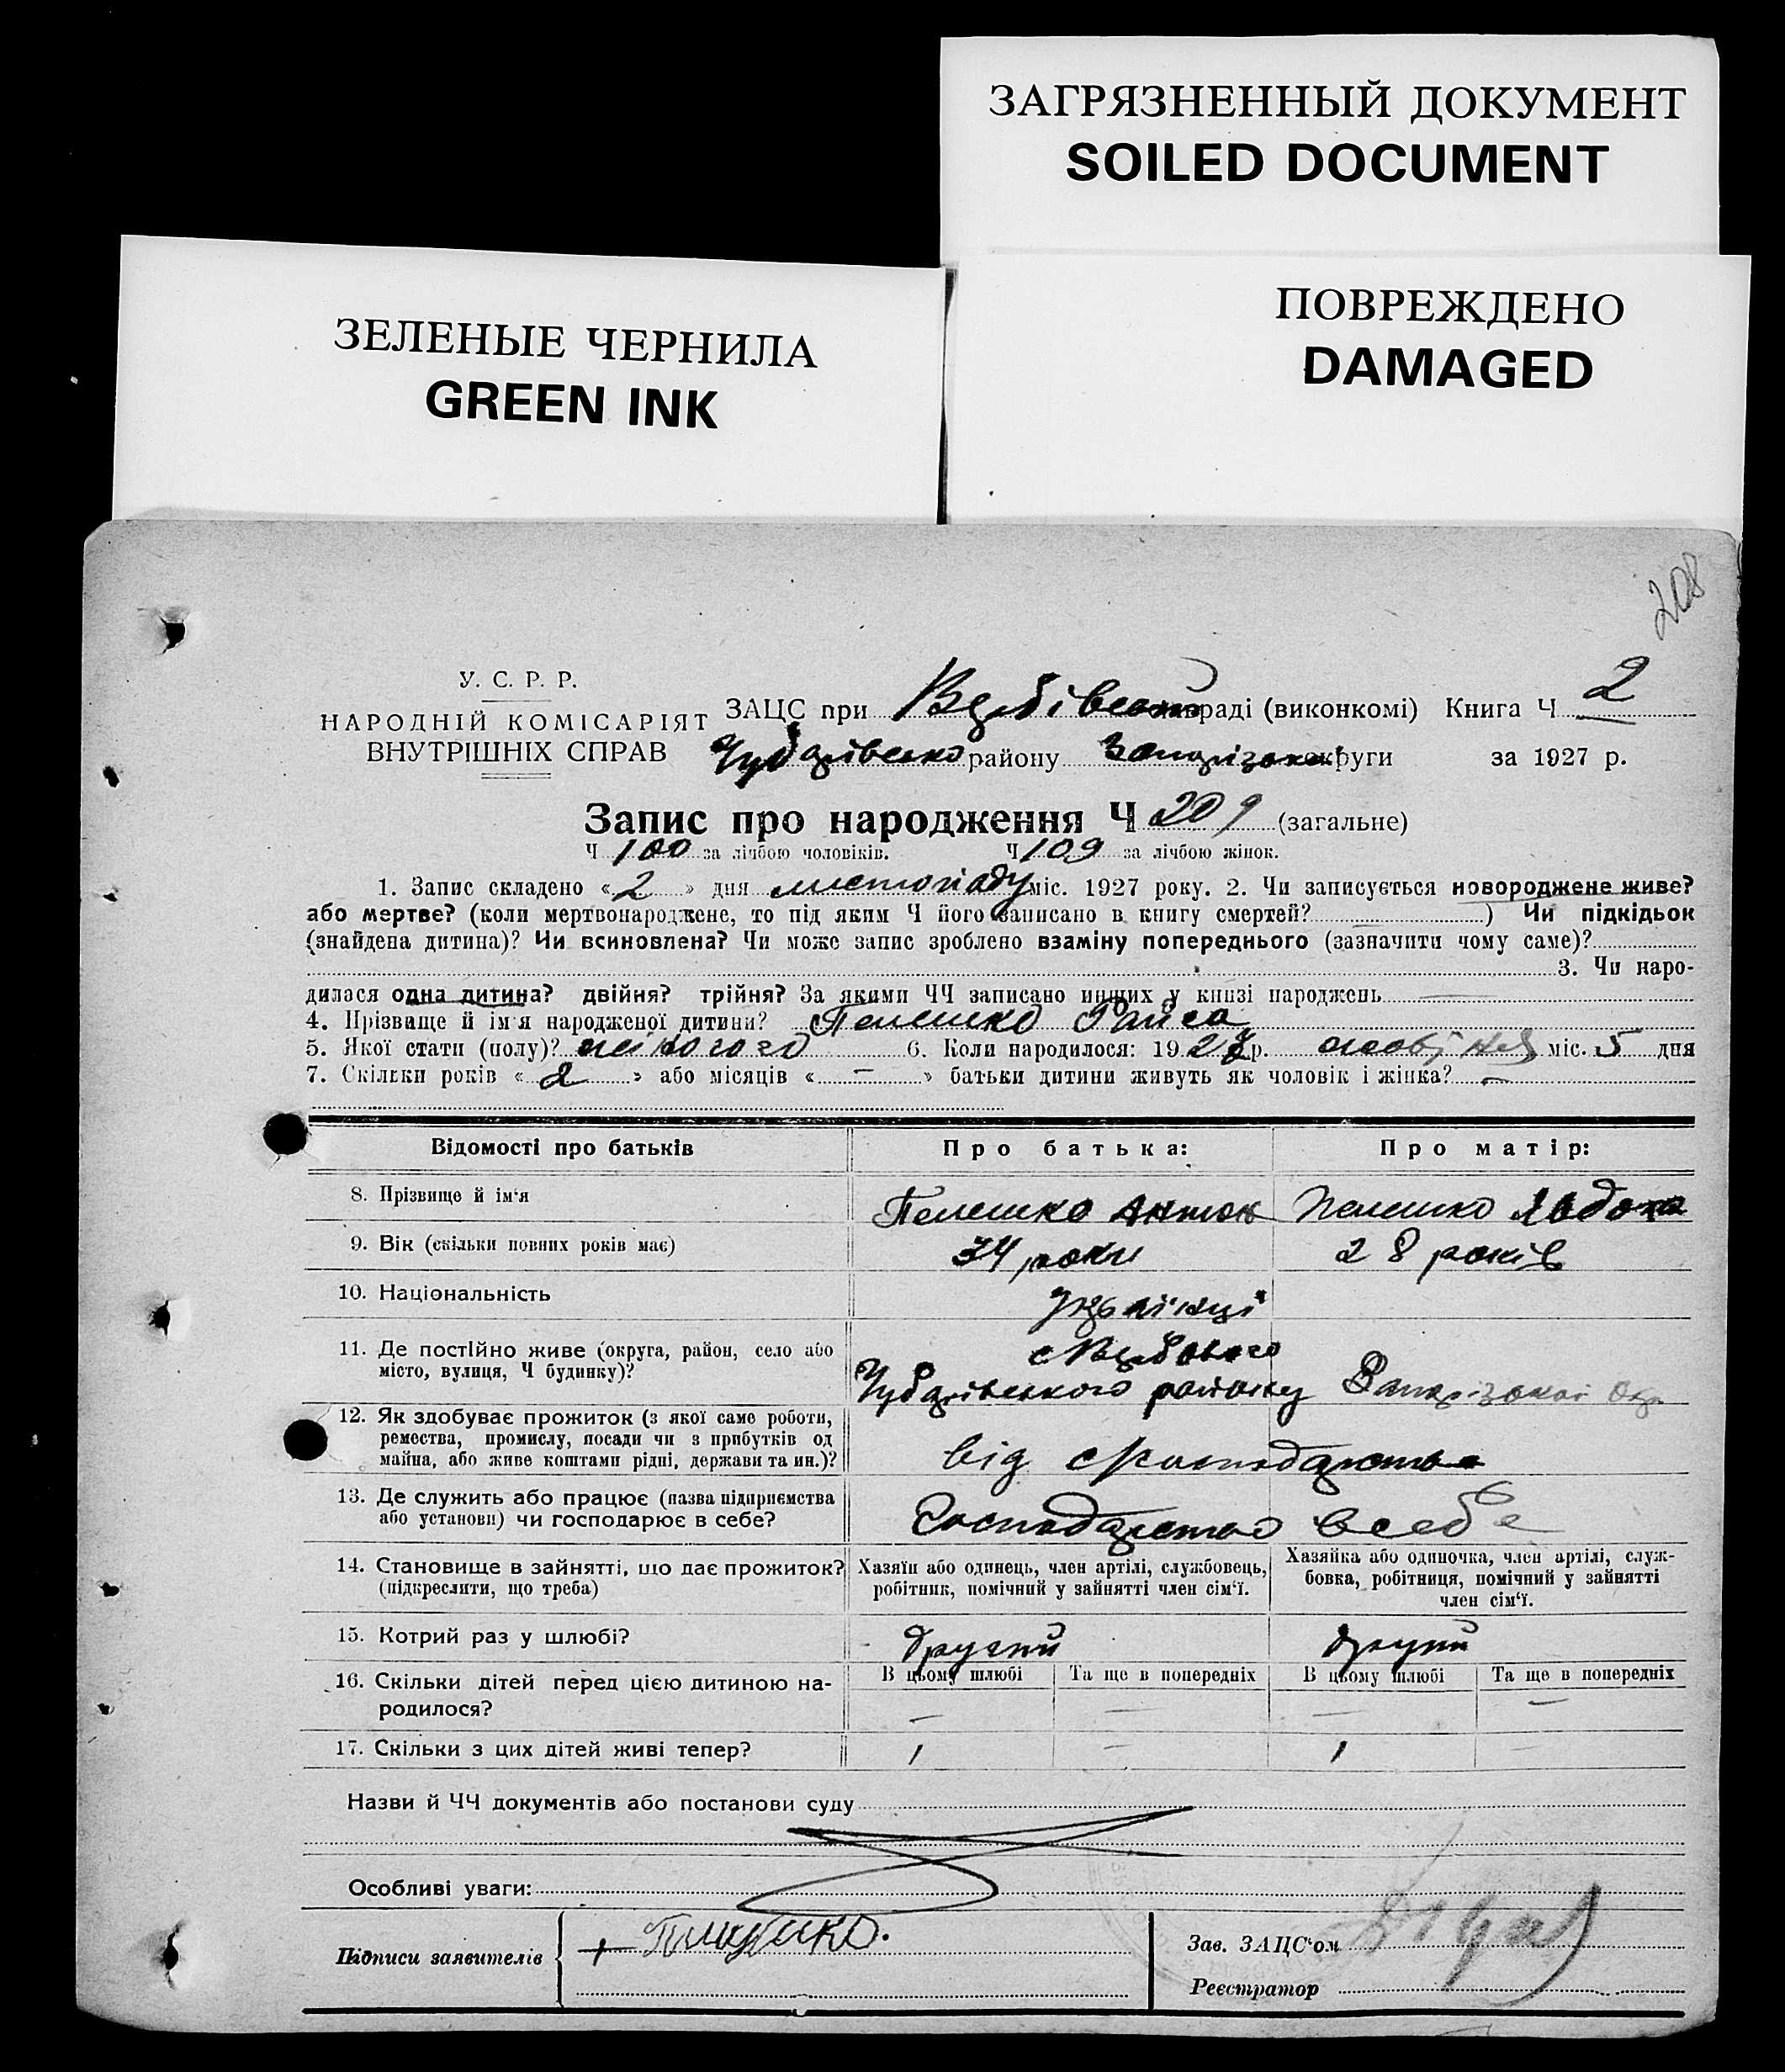 ЗАГРЯЗНЕННЫЙ ДОКУМЕНТ
SOILED DOCUMENT
ЗЕЛЕНЫЕ ЧЕРНИЛА
GREEN INK
ПОВРЕЖДЕНО
DAMAGED
208
У. С. Р. Р.
НАРОДНІЙ КОМІСАРІЯТ
ВНУТРІШНІХ СПРАВ
ЗАЦС при Вербівській раді (виконкомі) Книга Ч 2
Чубарівсько району Запорізько округи за 1927 р.
Запис про народження Ч 209 (загальне)
Ч 100 за лічбою чоловіків. Ч 109 за лічбою жінок.
1. Запис складено «2» дня листопаду міс. 1927 року. 2. Чи записується новороджене живе?
або мертве? (коли мертвонароджене, то під яким Ч його записано в книгу смертей? —) Чи підкідьок
(знайдена дитина)? Чи всиновлена? Чи може запис зроблено взаміну попереднього (зазначити чому саме)?
3. Чи наро-
дилася одна дитина? двійня? трійня? За якими ЧЧ записано инших у книзі народжень —
4. Прізваще й ім'я народженої дитини? Пелешко Раиса
5. Якої стати (полу)? жіночого 6. Коли народилося: 1927 р. міс. 5 дня
7. Скільки років «2» або місяців «—» батьки дитини живуть як чоловік і жінка? —
Відомості про батьків Про батька: Про матір:
8. Прізвище й ім'я Пелешко Антон Пелешко Явдоха
9. Вік (скільки повних років має) 34 роки 28 років
10. Національність Українці
11. Де постійно живе (округа, район, село або
місто, вулиця, Ч будинку)? с Вербового
Чубарівського району Запорізької Окр.
12. Як здобуває прожиток (з якої саме роботи,
ремества, промислу, посади чи з прибутків од
майна, або живе коштами рідні, держави та ин.)? від с господарства
13. Де служить або працює (назва підприємства
або установи) чи господарює в себе? Господарство в себе
14. Становище в зайнятті, що дає прожиток?
(підкреслити, що треба)
Хазяїн або одинець, член артілі, службовець,
робітник, помічний у зайнятті член сім'ї.
Хазяйка або одиночка, член артілі, служ-
бовка, робітниця, помічний у зайнятті
член сім'ї.
15. Котрий раз у шлюбі? другий другий
16. Скільки дітей перед цією дитиною на-
родилося?
В цьому шлюбі Та ще в попередніх В цьому шлюбі Та ще в попередніх
— — — —
17. Скільки з цих дітей живі тепер? 1 — 1 —
Назви й ЧЧ документів або постанови суду
Особливі уваги:
Підписи заявителів
Зав. ЗАЦС'ом
Реєстратор